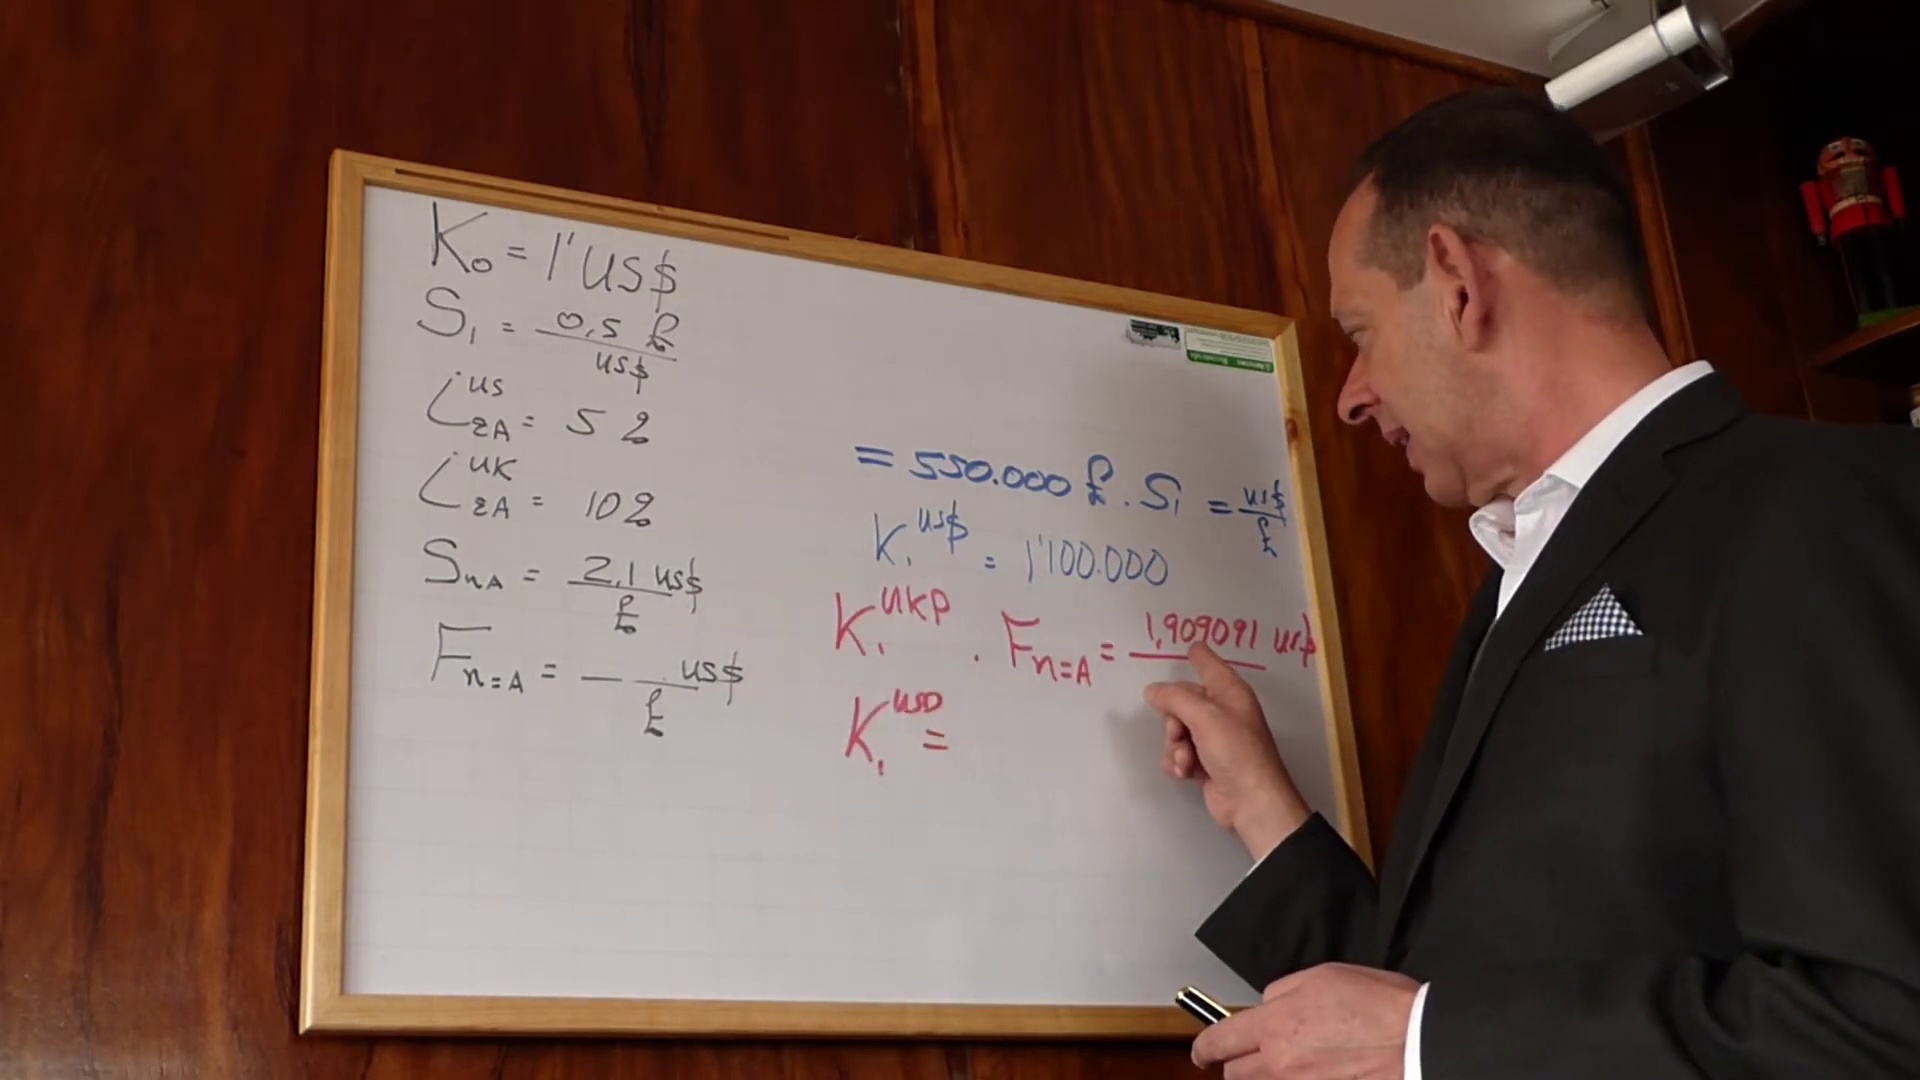 K₀ = 1' US$
S₁ = 0,5 £ / US$
i US 2A = 5 %
i UK 2A = 10 %
SnA = 2,1 US$ / £
Fn=A = _ _ US$ / £
= 550.000 £ . S₁ = US$ / £
K₁ US$ = 1'100.000
K₁ UKP . Fn=A = 1,909091 US$
K₁ USD =